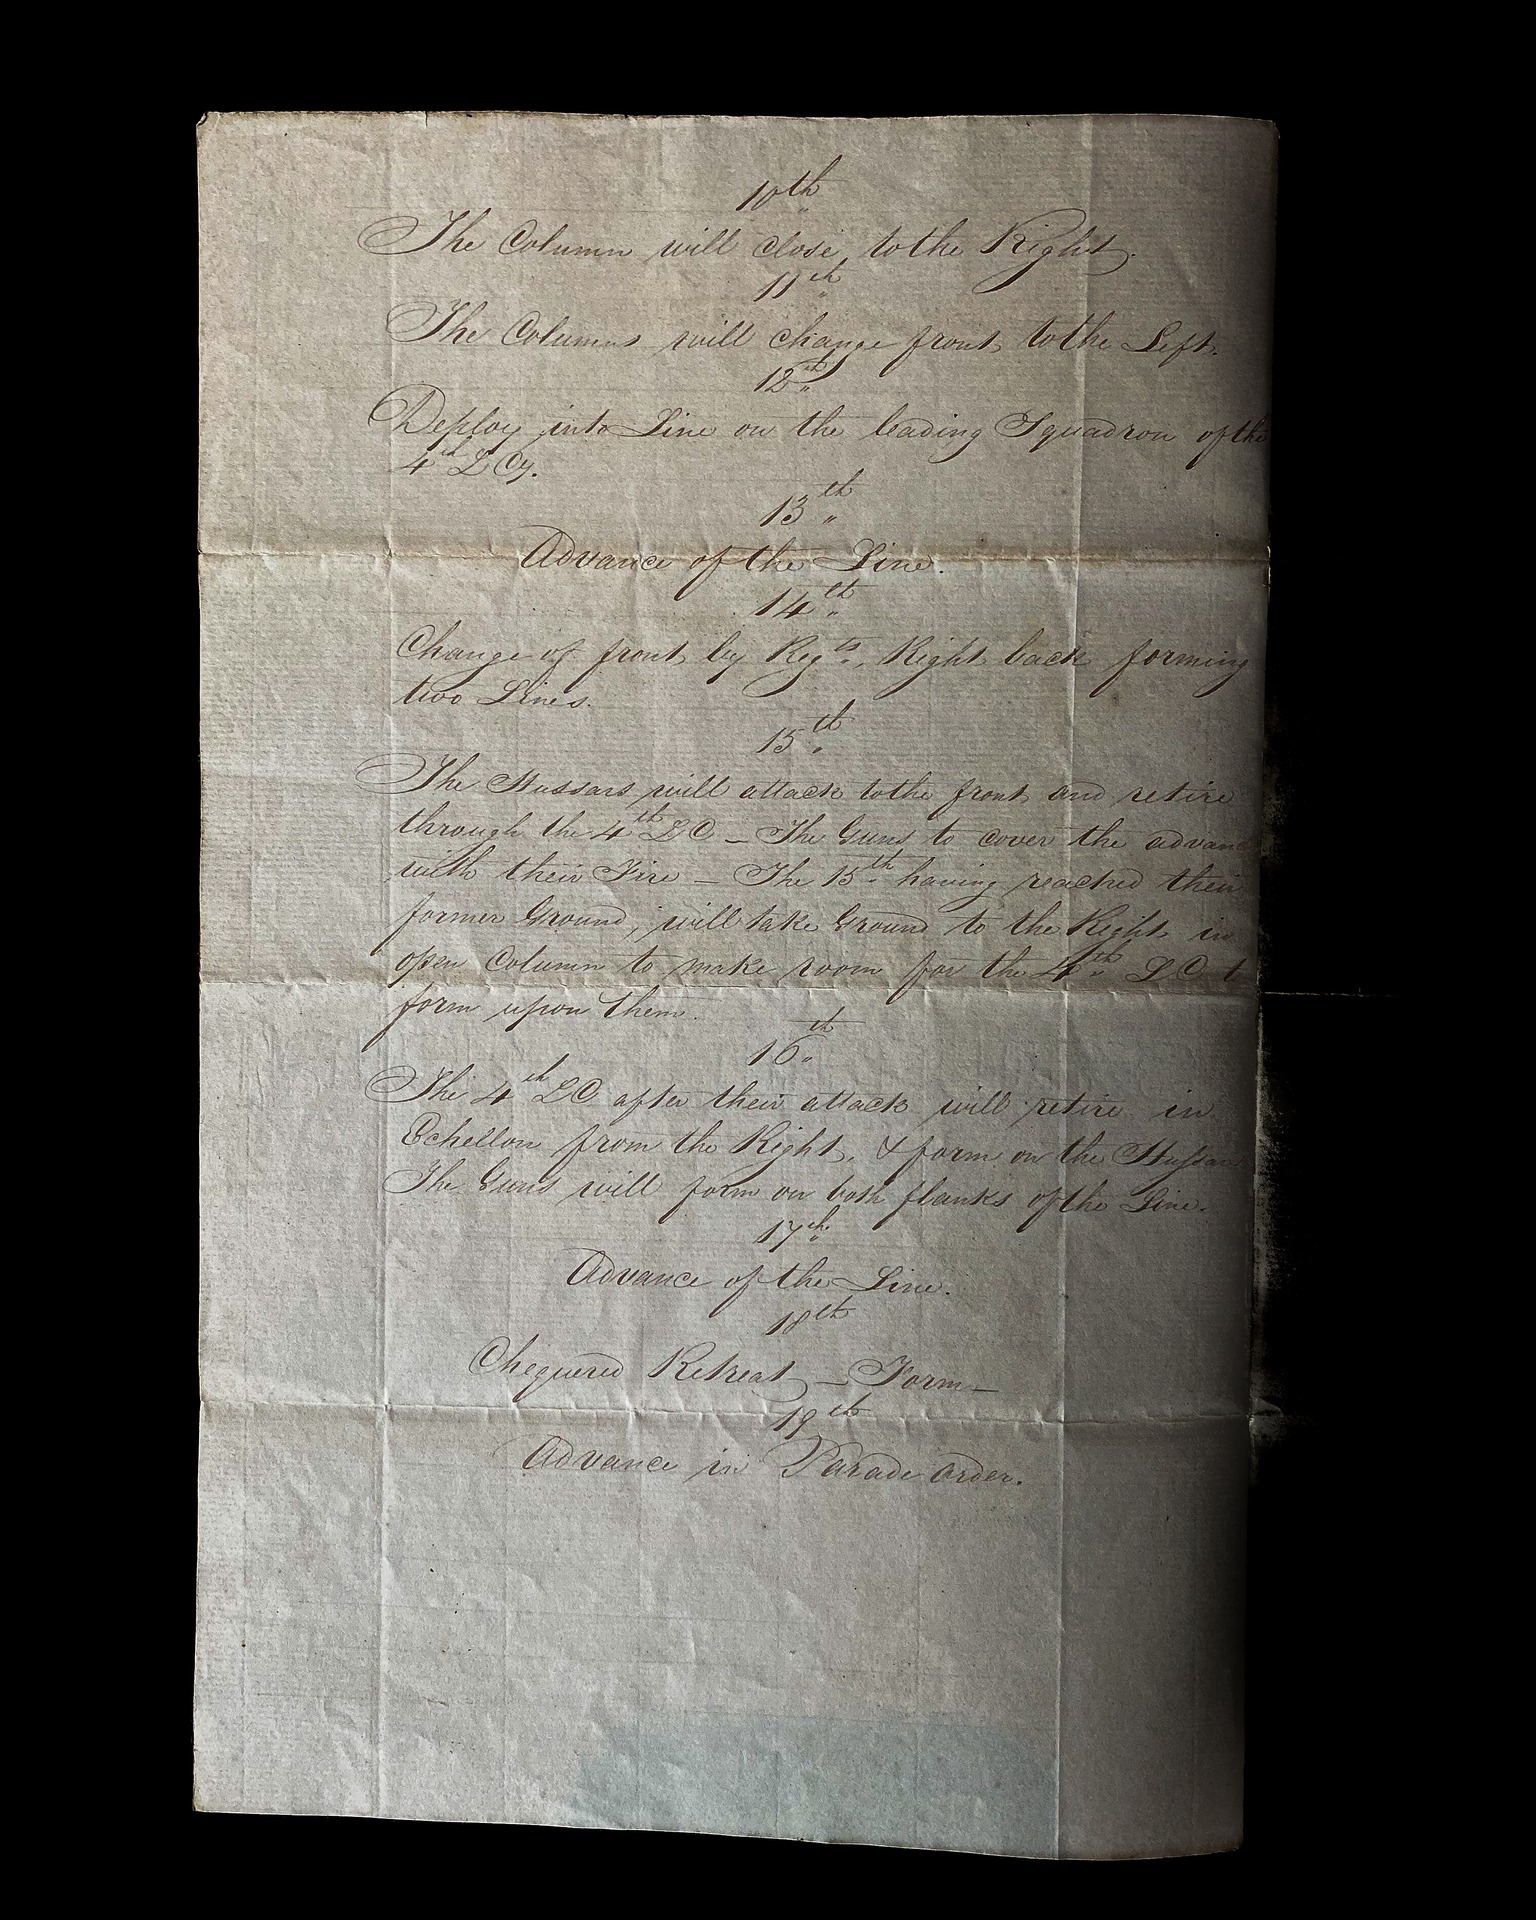 10th
The Column will close to the Right.
11th
The Columns will change front to the Left.
12th
Deploy into Line on the leading Squadron of the
4th L Cy.
13th
Advance of the Line.
14th
Change of front by Regts. Right back forming
two Lines.
15th
The Hussars will attack to the front and retire
through the 4th L C – The Guns to cover the advan
with their Fire – The 15th having reached their
former Ground, will take Ground to the Right in
open Column to make room for the 4th L C t
form upon them.
16th
The 4th L C after their attack will retire in
Echellon from the Right, & form on the Hussar
The Guns will form on both flanks of the Line.
17th
Advance of the Line.
18th
Chequered Retreat – Form –
19th
Advance in Parade order.